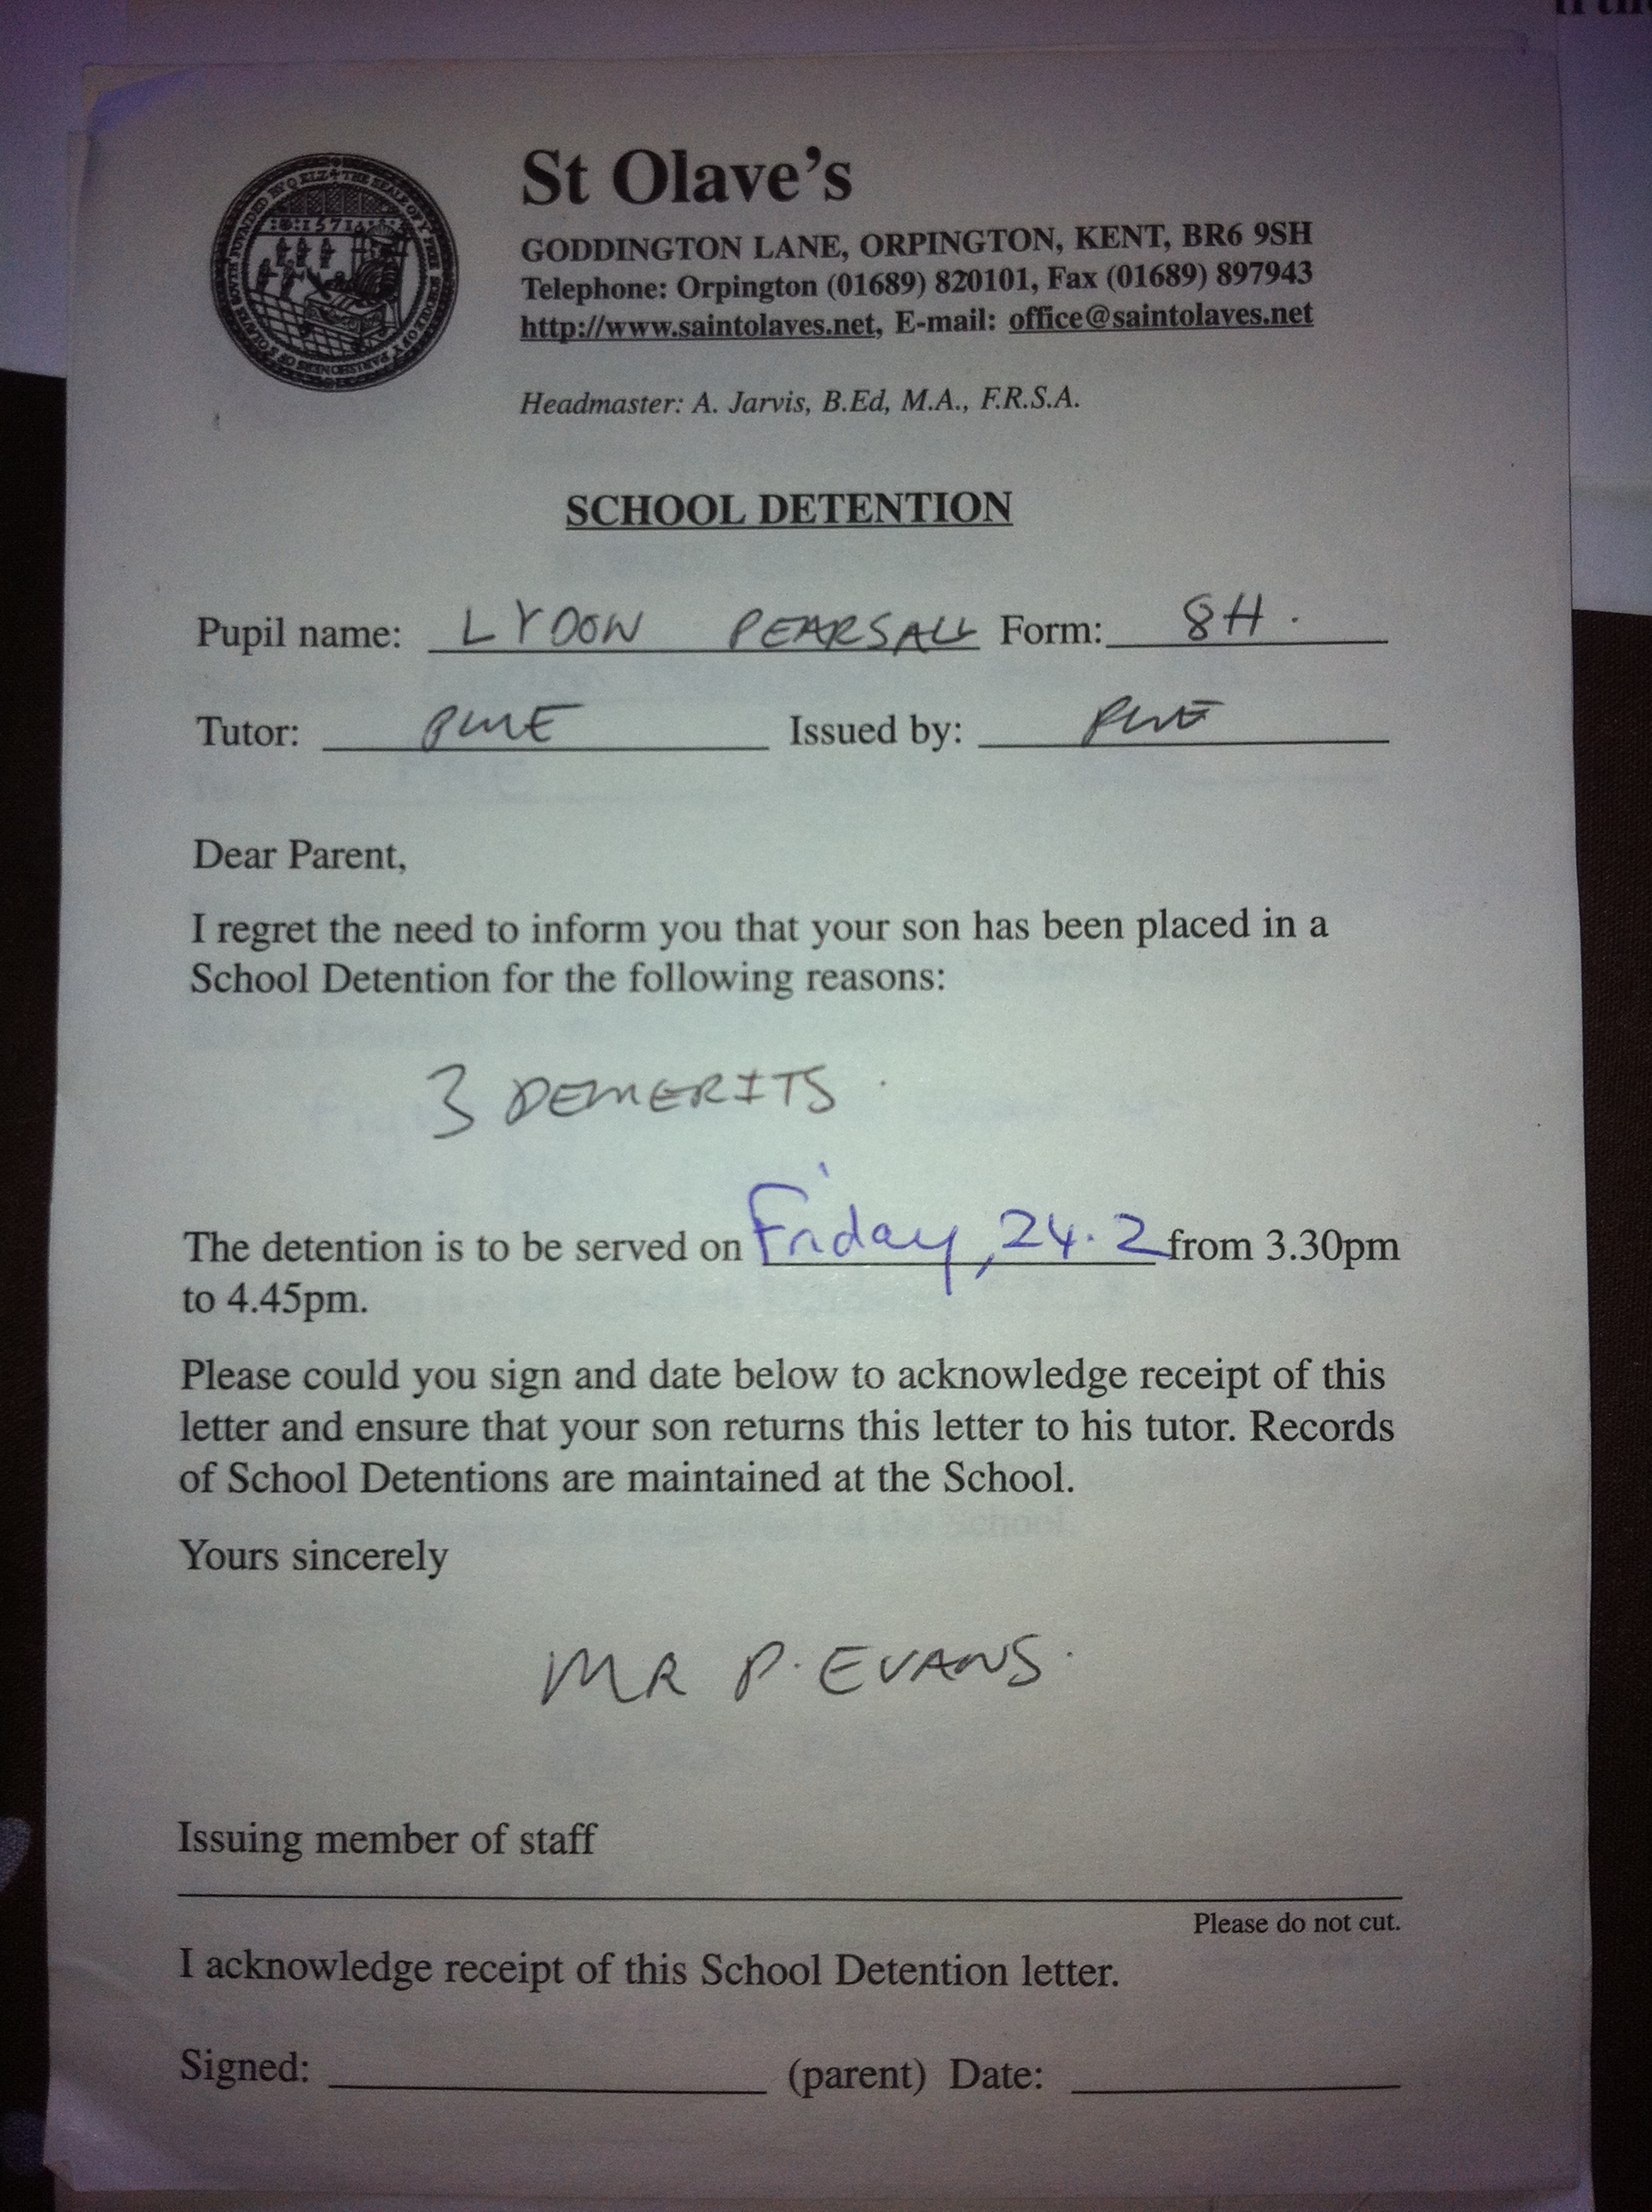 St Olave's
GODDINGTON LANE, ORPINGTON, KENT, BR6 9SH
Telephone: Orpington (01689) 820101, Fax (01689) 897943
http://www.saintolaves.net, E-mail: office@saintolaves.net
Headmaster: A. Jarvis, B.Ed, M.A., F.R.S.A.
SCHOOL DETENTION
Pupil name: LYDON PEARSALL Form: 8H.
Tutor: PWE Issued by: PWE
Dear Parent,
I regret the need to inform you that your son has been placed in a
School Detention for the following reasons:
3 DEMERITS.
The detention is to be served on Friday, 24.2 from 3.30pm
to 4.45pm.
Please could you sign and date below to acknowledge receipt of this
letter and ensure that your son returns this letter to his tutor. Records
of School Detentions are maintained at the School.
Yours sincerely
MR P. EVANS.
Issuing member of staff
Please do not cut.
I acknowledge receipt of this School Detention letter.
Signed: (parent) Date: